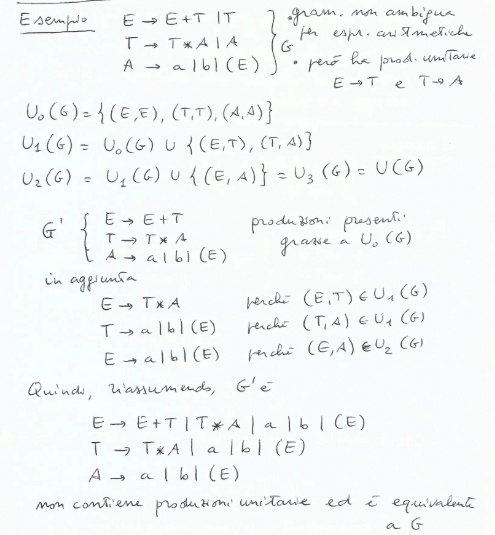 Esempio E → E+T | T • gram. non ambigua
T → T*A | A G per espr. aritmetiche
A → a | b | (E) • però ha prod. unitarie
E → T e T → A
U₀(G) = {(E,E), (T,T), (A,A)}
U₁(G) = U₀(G) ∪ {(E,T), (T,A)}
U₂(G) = U₁(G) ∪ {(E,A)} = U₃(G) = U(G)
G' { E → E+T produzioni presenti
T → T*A grazie a U₀(G)
A → a | b | (E)
in aggiunta
E → T*A perché (E,T) ∈ U₁(G)
T → a | b | (E) perché (T,A) ∈ U₁(G)
E → a | b | (E) perché (E,A) ∈ U₂(G)
Quindi, riassumendo, G' è
E → E+T | T*A | a | b | (E)
T → T*A | a | b | (E)
A → a | b | (E)
non contiene produzioni unitarie ed è equivalente
a G